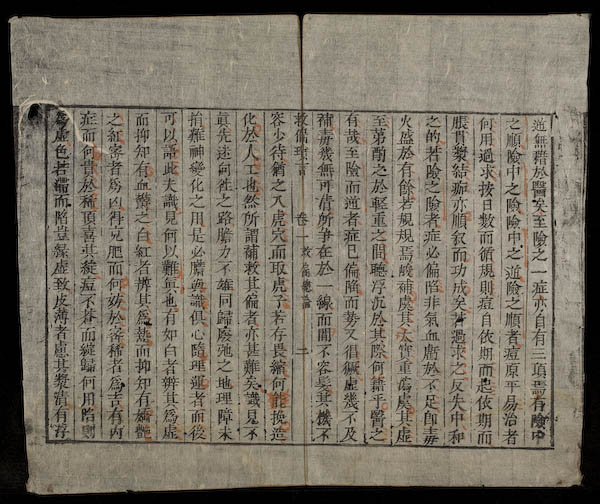 逆無藉於醫矣至險之一症亦自有三項焉有險中
之順險中之險險中之逆險之順者痘原平易治者
何用過求按日數而循規則痘自依期而起依期而
脹貫漿結痂亦順敘而功成矣若過求之反失中和
之的若險之險者症必偏陷非氣血虧於不足卽毒
火盛於有餘若規規焉淺補處其太實重瀉處其虛
至第酌之於輕重之間聽浮沉於其際何藉乎醫之
有哉至險而逆者症已偏陷而勢又倡獗虛幾不及
補毒幾無可清所爭在於一線而間不容髮其機不
救偏瑣言 卷一 救偏總論 二
容少待猶之入虎穴而取虎子若存畏縮何能挽造
化於人工也然所謂補救其偏者亦甚難矣識見不
眞先迷向往之路膽力不雄同歸廢弛之地理障未
捐難神變化之用是必膽與識俱心隨理運者而後
可以語此夫識見何以難眞也有如白者辨其爲虛
而抑知有血鬱之白紅者辨其爲熱而抑知有嬌艷
之紅密者爲凶得充肥而何妨於密稀者爲吉有內
症而何貴於稀頂喜其綻痘不蒼而綻歸何用陷則
爲虛色若滯而陷豈緣虛致皮薄者慮其漿清有浮